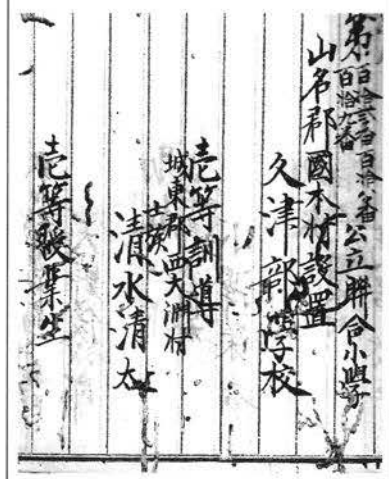 第百拾弐百拾八番公立聯合小学
百拾九番
山名郡國本村設置
久津部学校
壱等訓導
城東郡西大渕村
士族
清水清太
壱等授業生